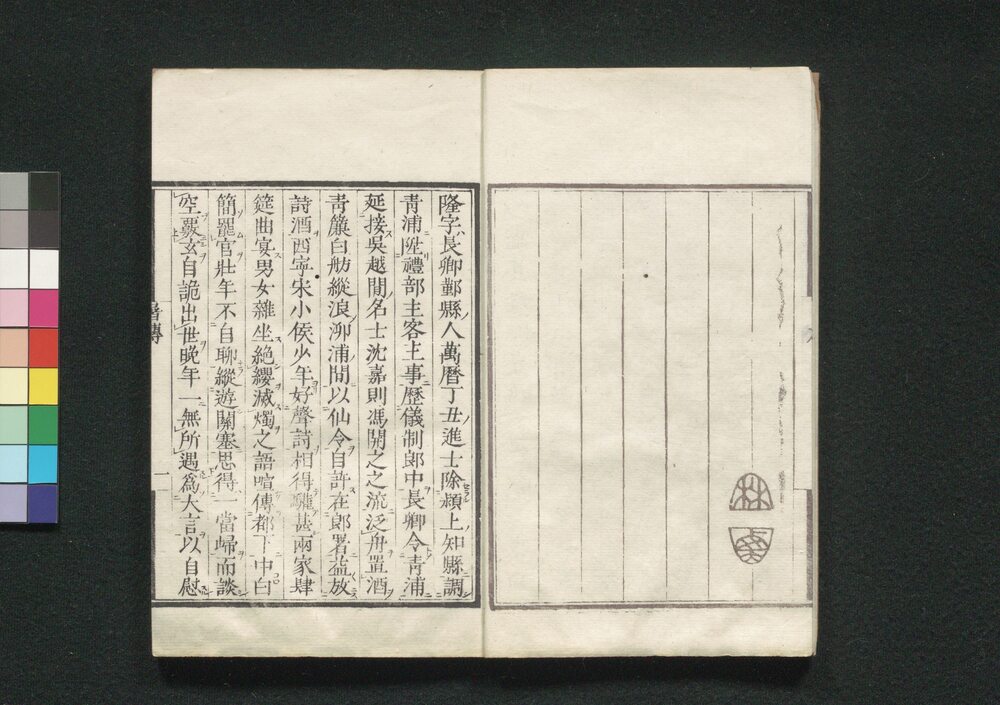 隆字長卿鄞縣人萬曆丁丑進士除潁上知縣調
青浦陞禮部主客主事歷儀制郎中長卿令青浦
延接吳越間名士沈嘉則馮開之之流泛舟置酒
青簾白舫縱浪泖浦間以仙令自許在郎署益放
詩酒西寧宋小侯少年好聲詩相得驩甚兩家肆
筵曲宴男女雜坐絕纓滅燭之語喧傳都下中白
簡罷官壯年不自聊縱遊關塞思得一當歸而談
空覈玄自詭出世晚年一無所遇為大言以自慰